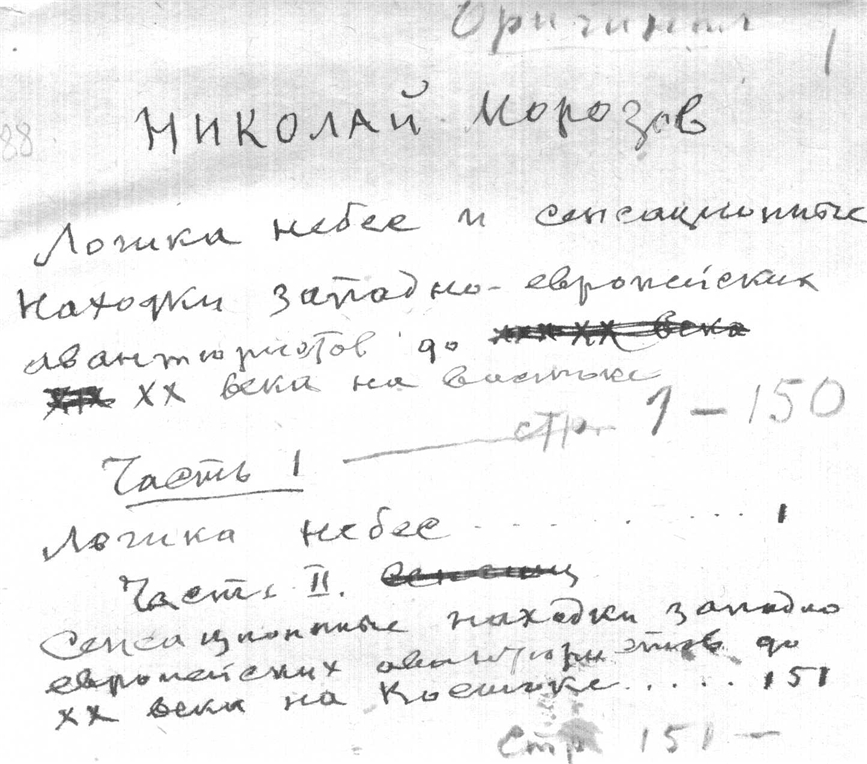 Оригинал
1
НИКОЛАЙ Морозов
88
Логика небес и сенсационные
находки западно-европейских
авантюристов до XX века
XIX XX века на востоке
стр. 1 – 150
Часть I
Логика небес . . . . . . . . 1
Часть II. Сенсац
Сенсационные находки западно
европейских авантюристов до
XX века на Востоке . . . . . 151
Стр 151 –